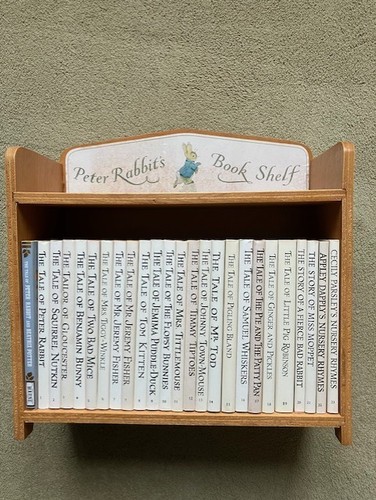 Peter Rabbit's Book Shelf
THE TALE OF PETER RABBIT
THE TALE OF SQUIRREL NUTKIN
THE TAILOR OF GLOUCESTER
THE TALE OF BENJAMIN BUNNY
THE TALE OF TWO BAD MICE
THE TALE OF MRS. TIGGY-WINKLE
THE TALE OF MR. JEREMY FISHER
THE TALE OF MR. JEREMY FISHER
THE TALE OF TOM KITTEN
THE TALE OF JEMIMA PUDDLE-DUCK
THE TALE OF THE FLOPSY BUNNIES
THE TALE OF MRS. TITTLEMOUSE
THE TALE OF TIMMY TIPTOES
THE TALE OF JOHNNY TOWN-MOUSE
THE TALE OF MR. TOD
THE TALE OF PIGLING BLAND
THE TALE OF SAMUEL WHISKERS
THE TALE OF THE PIE AND THE PATTY PAN
THE TALE OF GINGER AND PICKLES
THE TALE OF LITTLE PIG ROBINSON
THE STORY OF A FIERCE BAD RABBIT
THE STORY OF MISS MOPPET
APPLEY DAPPLY'S NURSERY RHYMES
CECILY PARSLEY'S NURSERY RHYMES